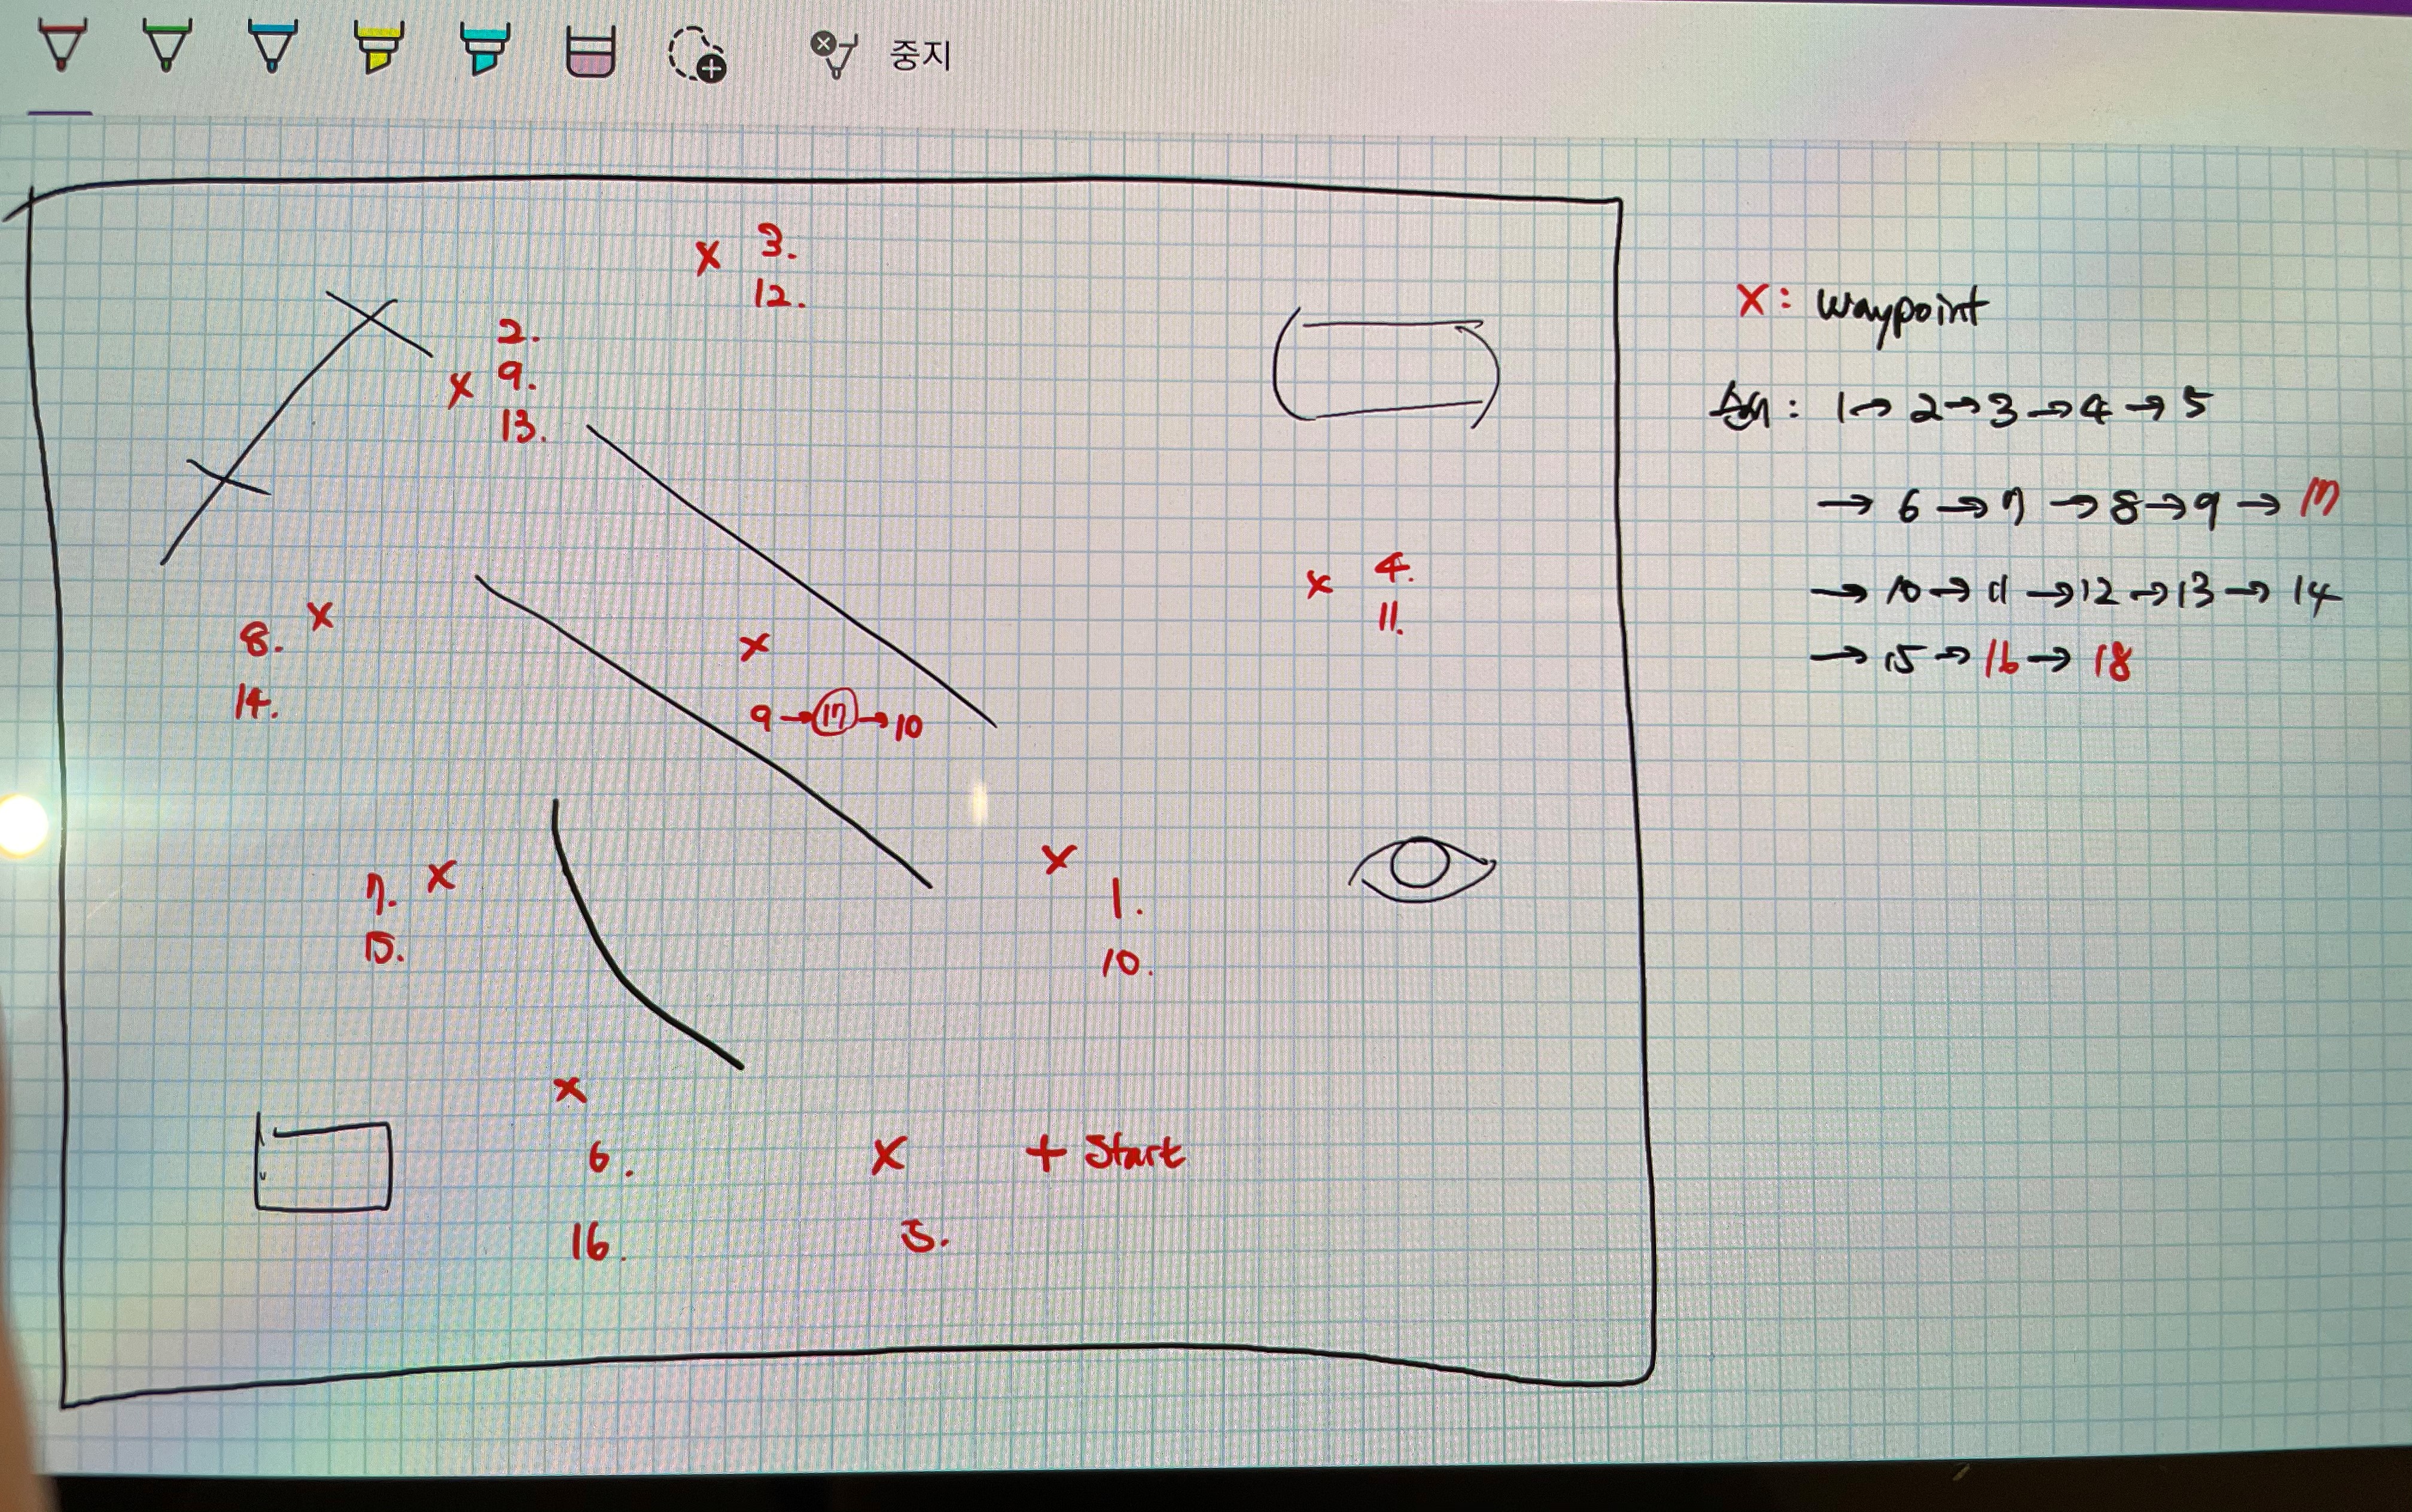 중지
3.
12.
2.
9.
13.
4.
11.
8.
14.
9→17→10
7.
15.
1.
10.
6.
16.
5.
+ Start
X: waypoint
순서: 1→2→3→4→5
→6→7→8→9→17
→10→11→12→13→14
→15→16→18